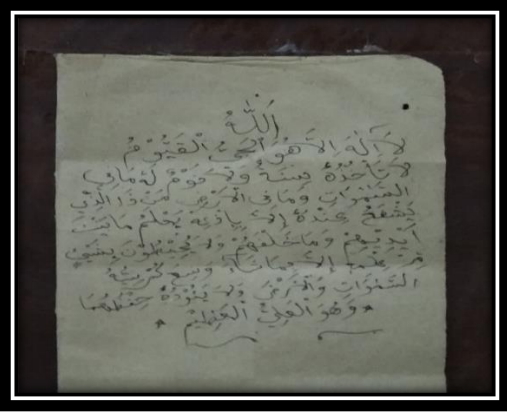 اَللّٰهُ
لَا اِلٰهَ اِلَّا هُوَ الْحَيُّ الْقَيُّوْمُ
لَا تَأْخُذُهٗ سِنَةٌ وَّلَا نَوْمٌ لَهٗ مَا فِى
السَّمٰوَاتِ وَمَا فِى الْاَرْضِ مَنْ ذَا الَّذِيْ
يَشْفَعُ عِنْدَهٗ اِلَّا بِاِذْنِهٖ يَعْلَمُ مَا بَيْنَ
اَيْدِيْهِمْ وَمَا خَلْفَهُمْ وَلَا يُحِيْطُوْنَ بِشَيْئٍ
مِنْ عِلْمِهٖ اِلَّا بِمَا شَآءَ وَسِعَ كُرْسِيُّهُ
السَّمٰوَاتِ وَالْاَرْضَ وَلَا يَئُوْدُهٗ حِفْظُهُمَا
وَهُوَ الْعَلِيُّ الْعَظِيْمُ